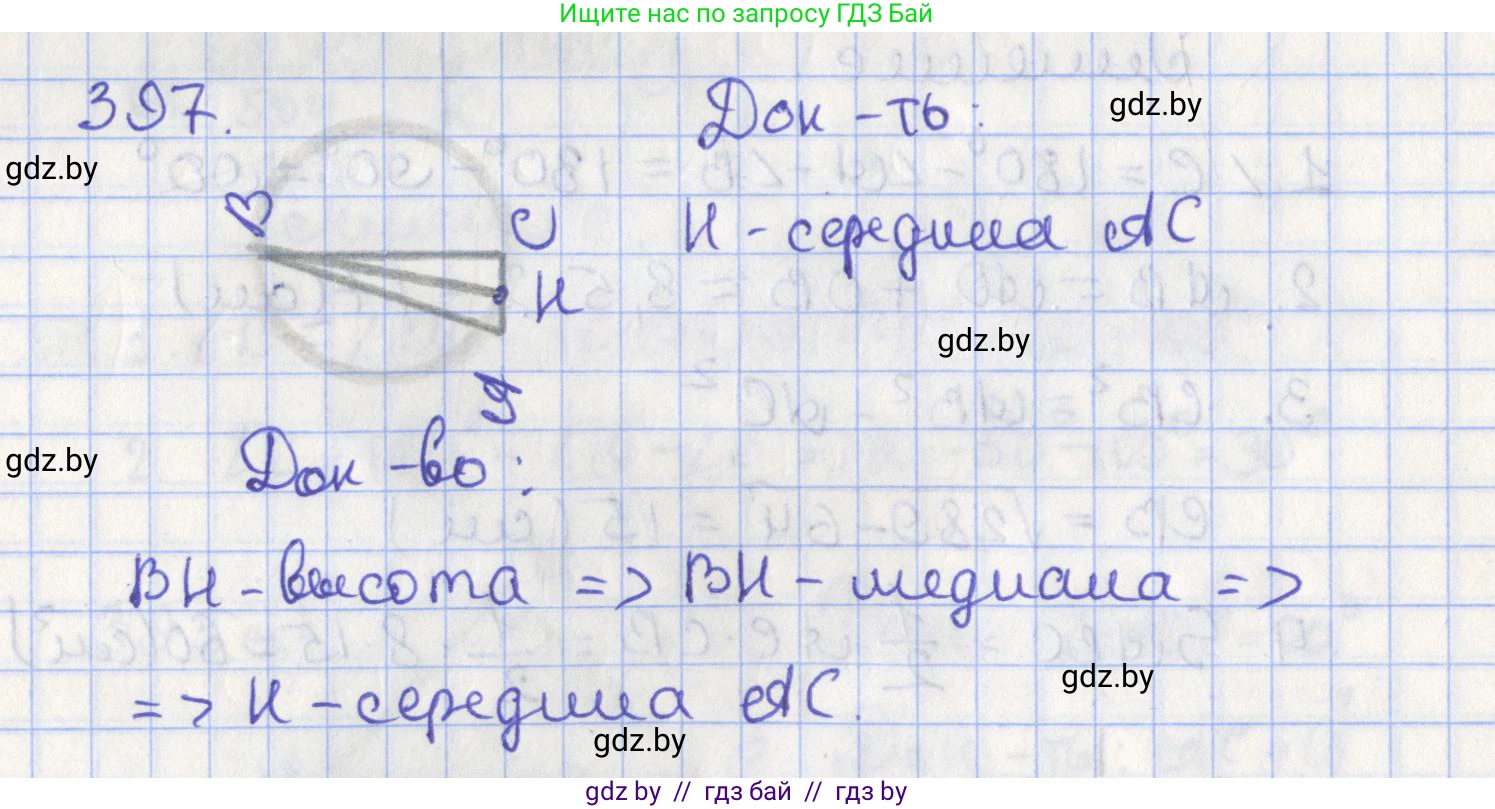 Ищите нас по запросу ГДЗ Бай
397.
Док-ть:
gdz.by
gdz.by
B
C
H - середина AC
H
gdz.by
A
Док-во:
gdz.by
BH - высота => BH - медиана =>
gdz.by
=> H - середина AC.
gdz.by
gdz by // гдз бай // гдз by